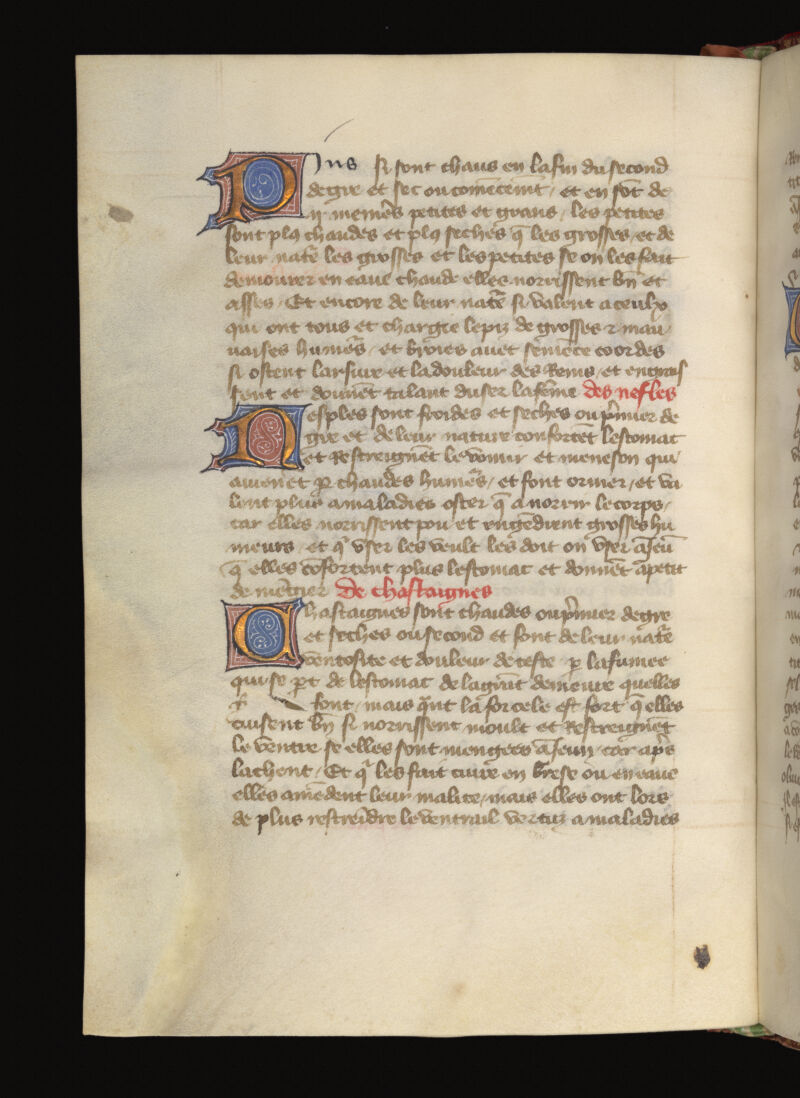 Pins si sont chaus en la fin du second
degre et sec ou cōmēcemt, et en sōt de
ij menieres petites et grans, les petites
sont plꝰ chaudes et plꝰ seches q̄ les grosses, et de
leur natē les grosses et les petites se on les fait
demourer en eaue chaude elles norrissent bn̄ et
asses, Et encore de leur natē si valent a ceulx
qui ont tous et chargie le piz de grosses ⁊ mau
uaises humēs, et broies auec semēce coordes
si ostent larsure et la douleur des Reins, et engrois
sent et donnēt talant duser la fēme des nefles
Nesples sont froides et seches ou p̄mier de
gre et de leur nature confortēt lestomac
et Restreignēt le vomir et meneson qui
auienēt p chaudes humēs, et font oriner, et va
lent plus a maladies oster q̄ a norrir le corps,
car elles norrissent pou et engēdrent grosses hu
meurs, et q̄ vser les veult les doit on vser a Jeū
q̄ elles cōfortent plus lestomac et donnēt apetit
de mēgier De chastaignes
Chastaignes sont chaudes ou p̄mier degre
et seches ou second et font de leur natē
ventosite et douleur de teste p la fumee
qui se p̄t de lestomac de la grāt demeure quelles
font, mais q̄nt la forcele est fort q̄ elles
cuisent bn̄ si norrissent moult et Restreignēt
le ventre se elles sont mengees a Jeun car ap̄s
lachent, Et q̄ les fait cuire en brese ou en eaue
elles amēdent leur malice, mais elles ont lors
de plus restreīdre le ventrail vertuz a maladies